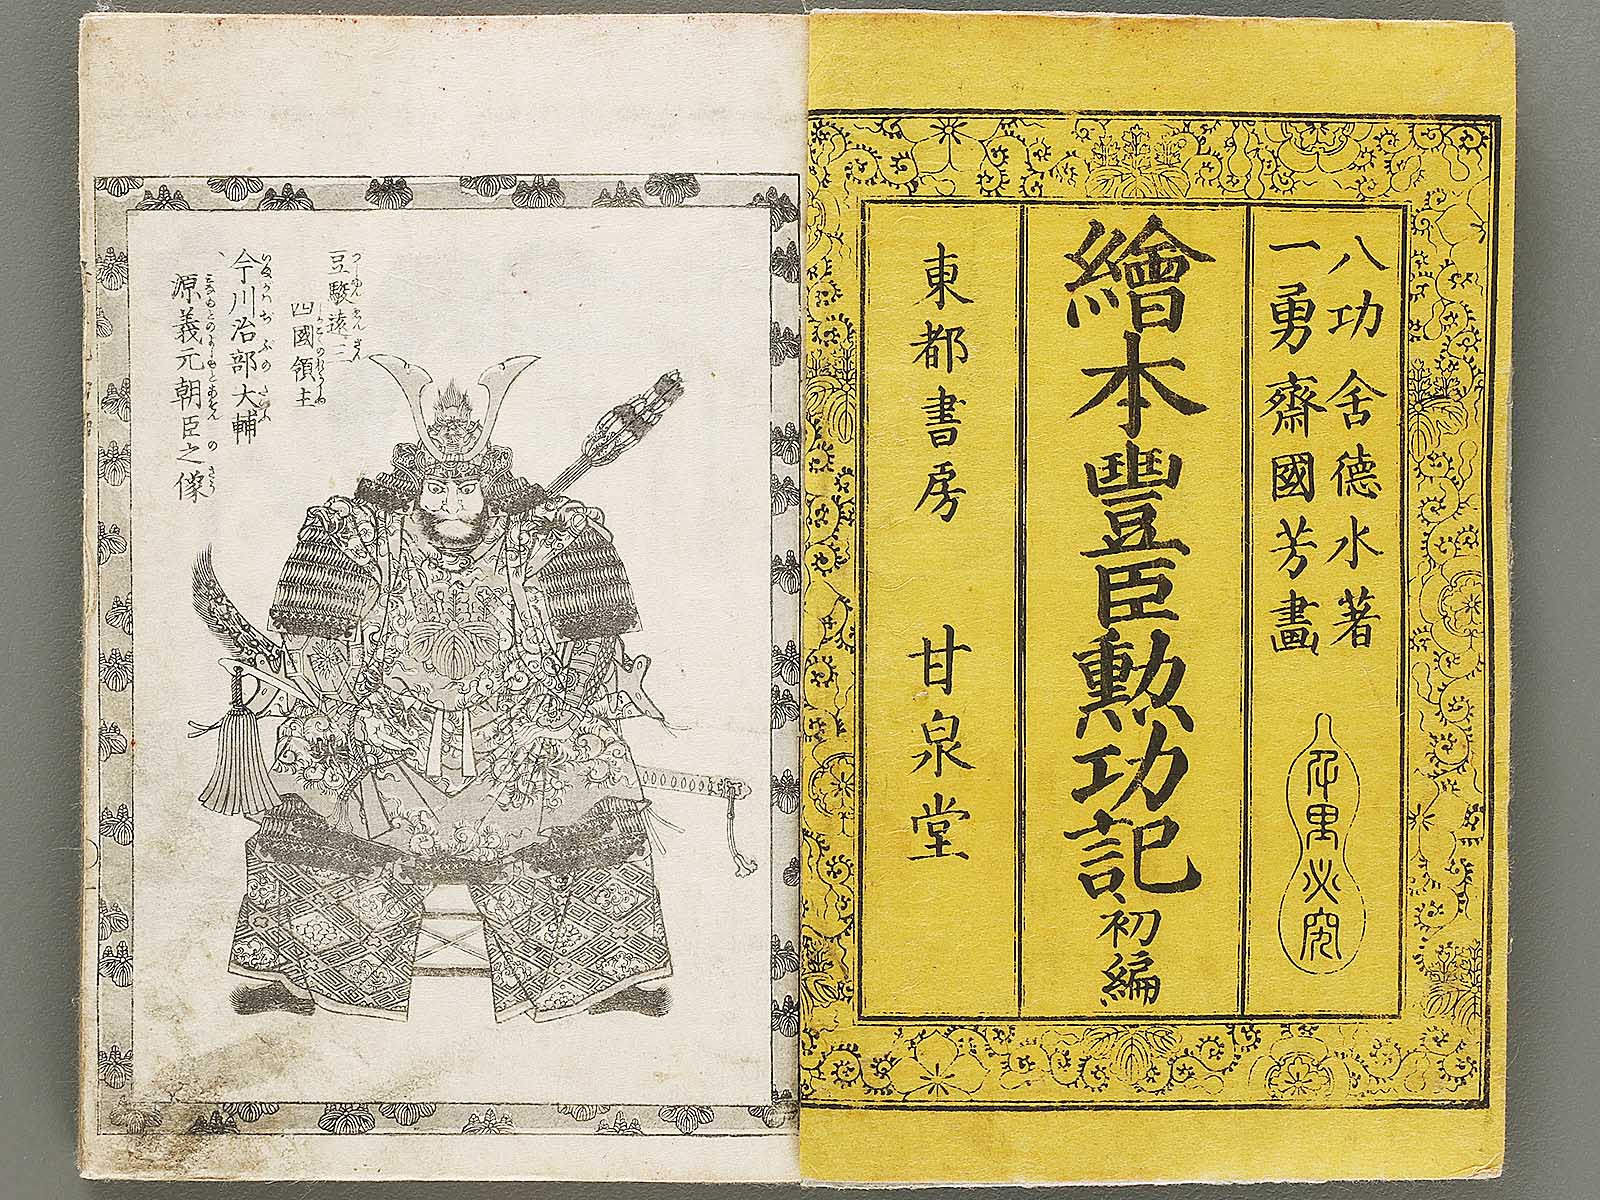 八功舍德水著
一勇齋國芳畫
千里必究
繪本豐臣勲功記初編
東都書房 甘泉堂
豆駿遠三
四國領主
今川治部大輔
源義元朝臣之像